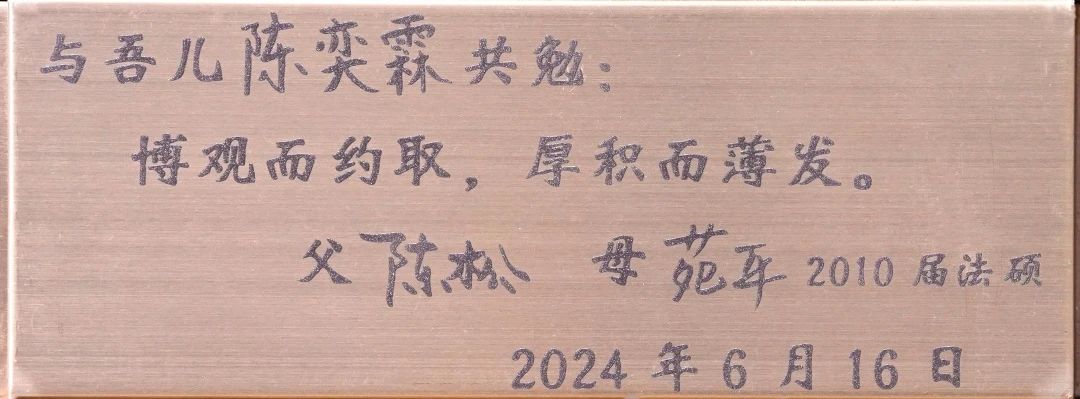 与吾儿陈奕霖共勉：
博观而约取，厚积而薄发。
父 陈松 母 苑 2010届法硕
2024年6月16日